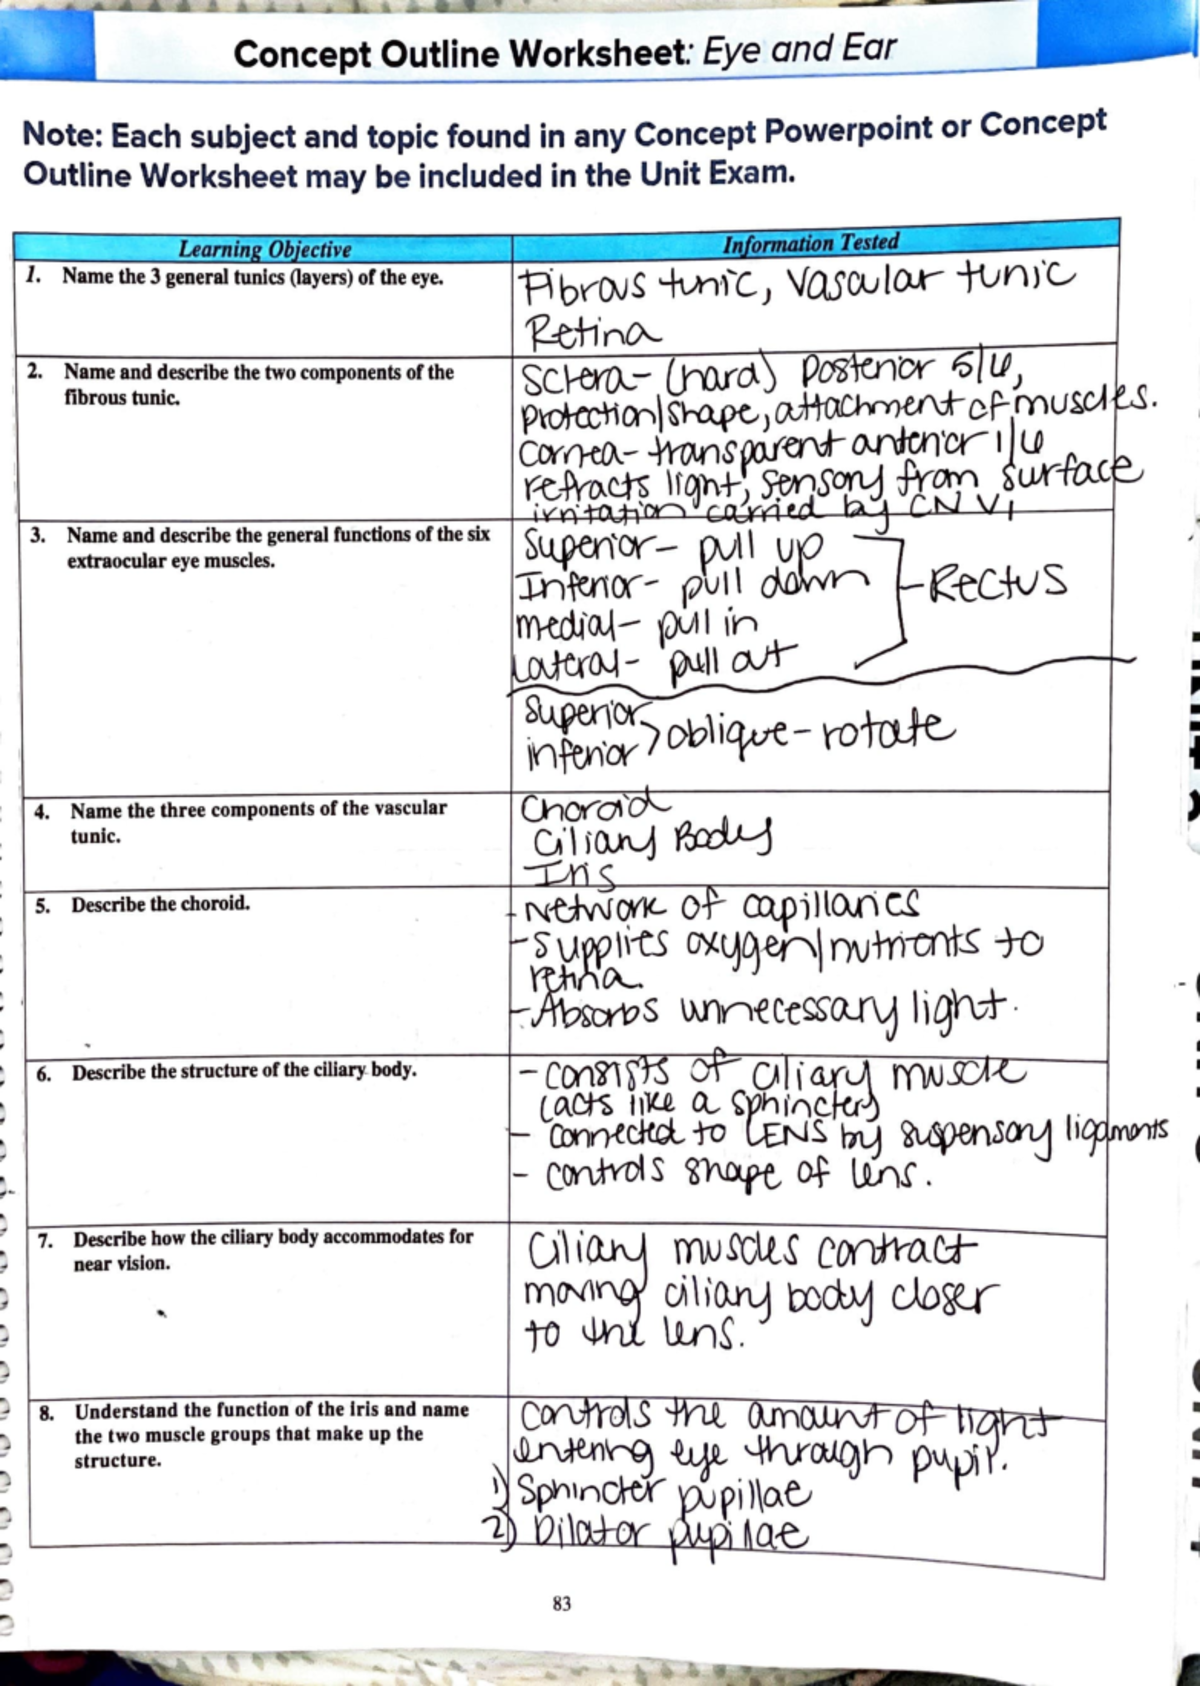 Concept Outline Worksheet: Eye and Ear
Note: Each subject and topic found in any Concept Powerpoint or Concept
Outline Worksheet may be included in the Unit Exam.
Learning Objective
Information Tested
1. Name the 3 general tunics (layers) of the eye.
Fibrous tunic, Vascular tunic
Retina
2. Name and describe the two components of the
fibrous tunic.
Sclera- (hard) Posterior 5/6,
protection/shape, attachment of muscles.
Cornea- transparent anterior 1/6
refracts light, sensory from surface
irritation carried by CN V1
3. Name and describe the general functions of the six
extraocular eye muscles.
Superior- pull up
Inferior- pull down
medial- pull in
Lateral- pull out
-Rectus
Superior
inferior > oblique- rotate
4. Name the three components of the vascular
tunic.
Choroid
Ciliary Body
Iris
5. Describe the choroid.
-Network of capillaries
-Supplies oxygen/nutrients to
retina.
-Absorbs unnecessary light.
6. Describe the structure of the ciliary body.
- consists of ciliary muscle
(acts like a sphincter)
- connected to LENS by suspensory ligaments
- controls shape of lens.
7. Describe how the ciliary body accommodates for
near vision.
Ciliary muscles contract
moving ciliary body closer
to the lens.
8. Understand the function of the iris and name
the two muscle groups that make up the
structure.
controls the amount of light
entering eye through pupil.
1) Sphincter pupillae
2) Dilator pupillae
83